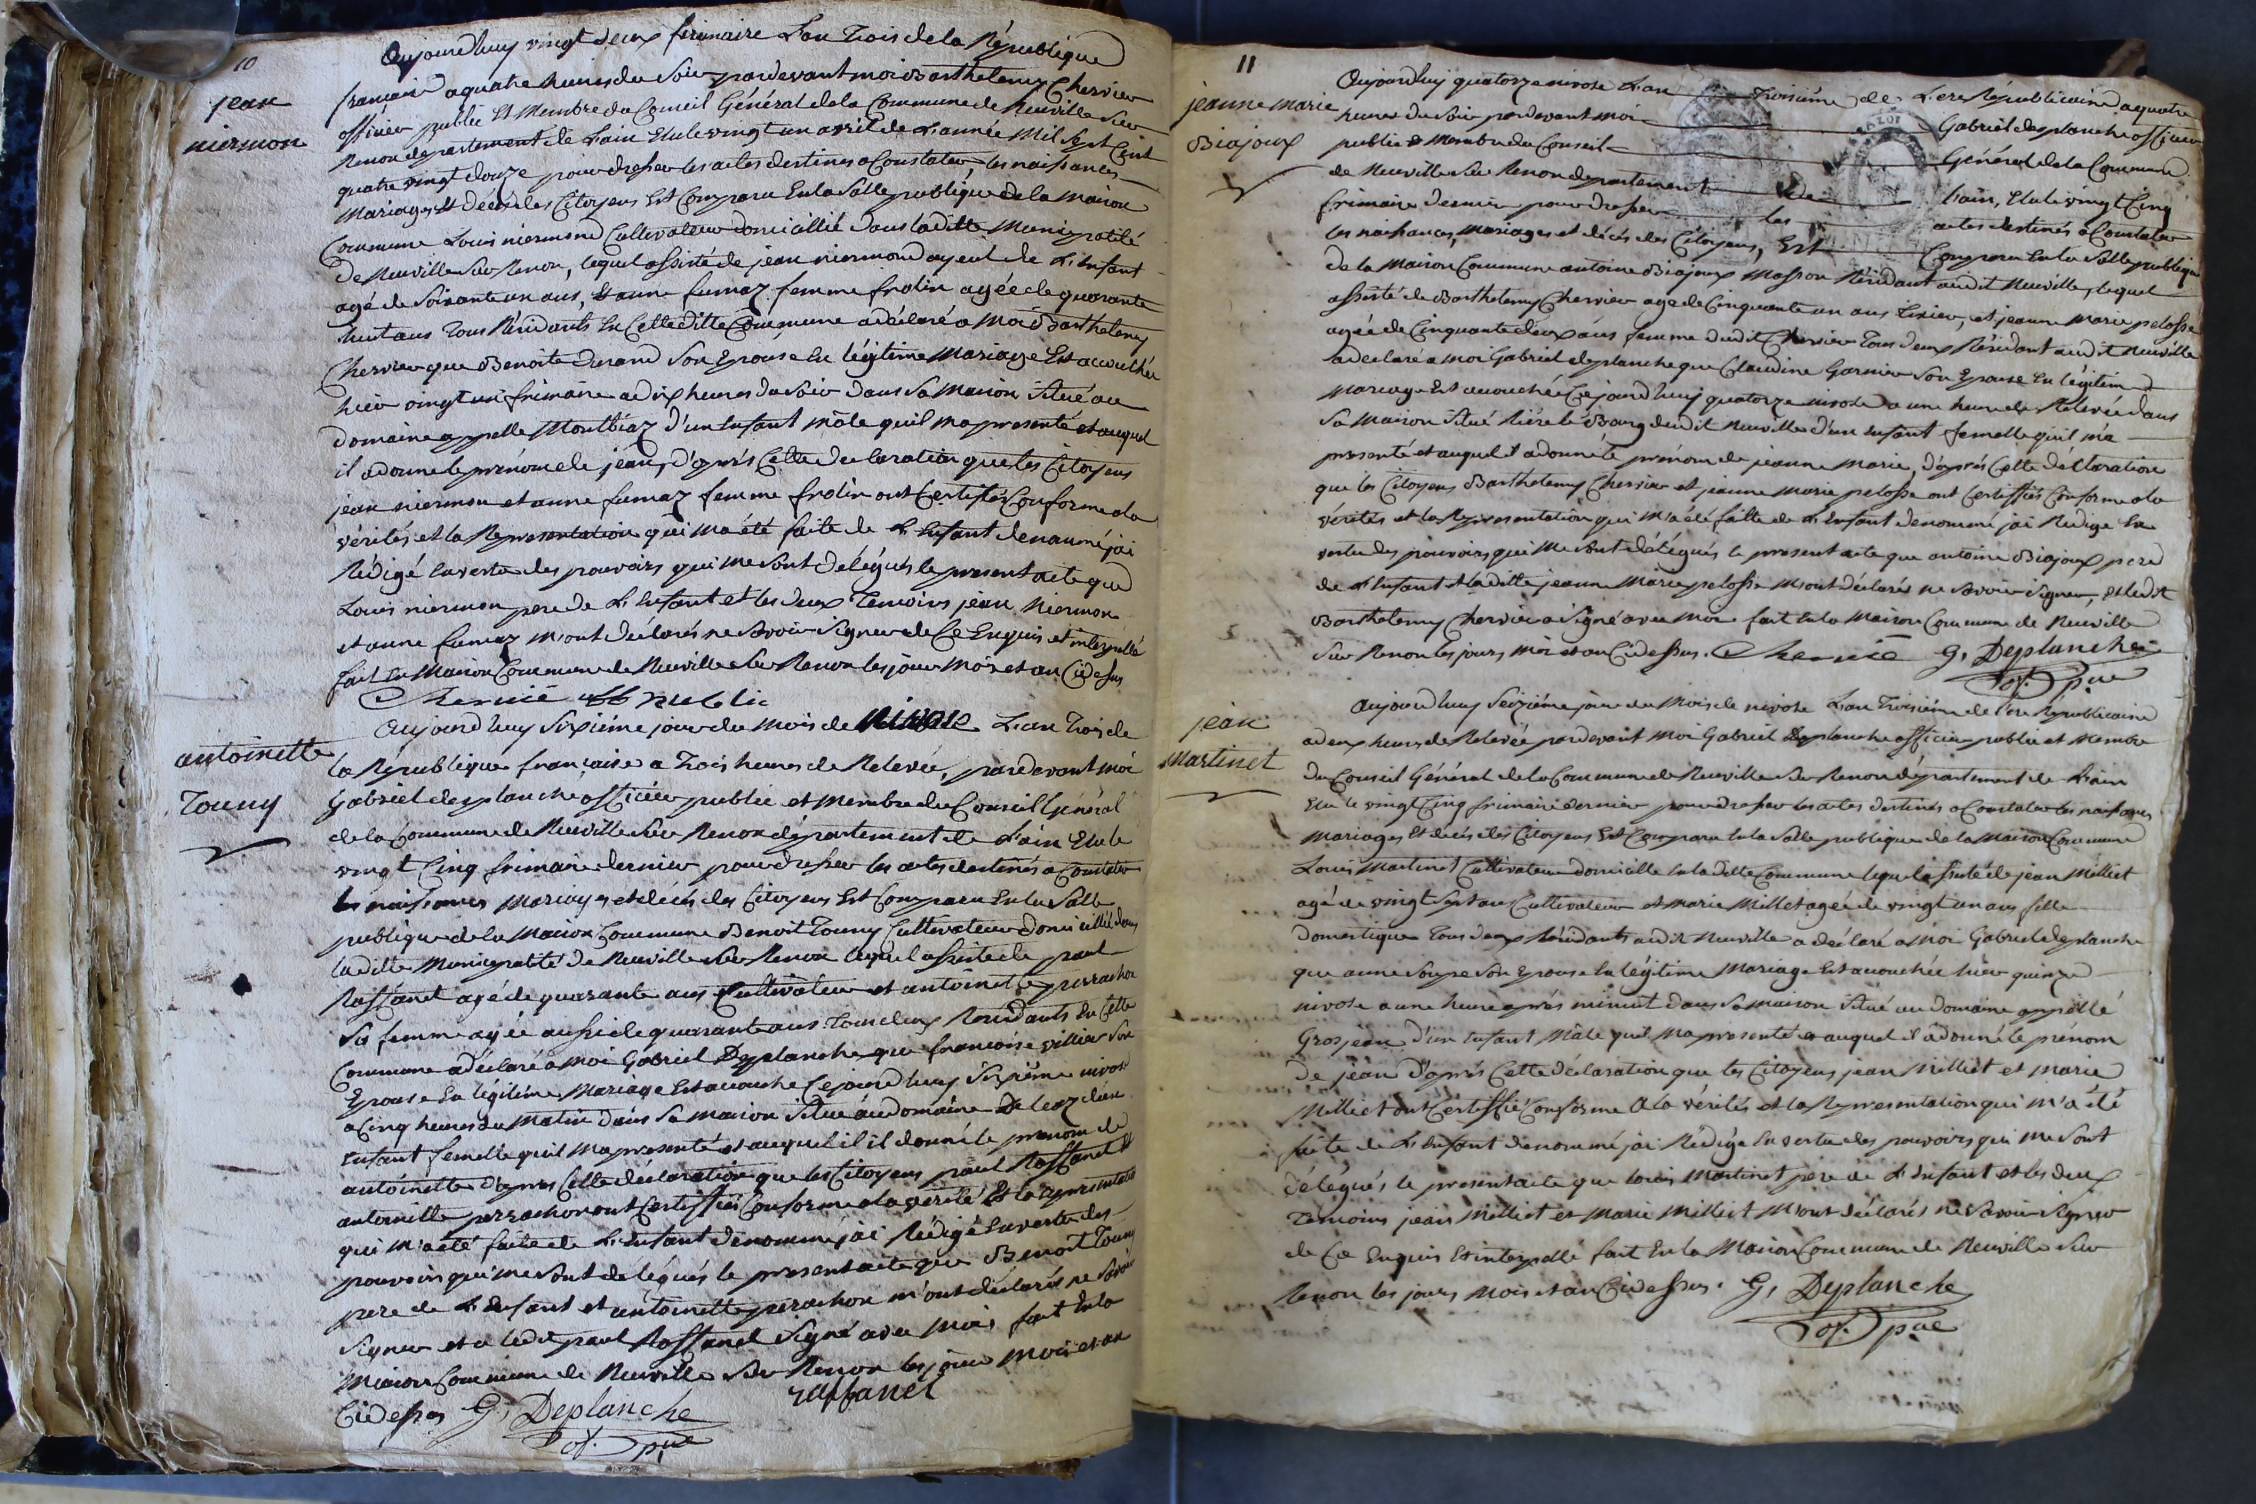 10
jean
niermon
Aujourd'huy vingt deux frimaire L'an Trois de la République
francaise a quatre heures du Soir pardevant moi Barthelemy Chervier
officier public Et Membre du Conseil Général de la Commune de Neuville Sur
Renon département de L'ain Elu le vingt un avril de L'année Mil Sept Cent
quatre vingt douze pour dresser les actes destinés a Constater les naissances
Mariages Et décès des Citoyens Est Comparu En la Salle publique de la maison
Commune Louis niermond Cultivateur domicillié dans laditte Municipalité
de Neuville Sur Renon, lequel assisté de jean niermond ayeul de L'Enfant
agé de Soixante un ans, Et anne fumaz femme frolin agée de quarante
huit ans Tous Résidants En Cette ditte Commune a déclaré a Moi Barthelemy
Chervier que Benoite durand Son Epouse En légitime Mariage Est accouchée
hier vingt un frimaire a dix heures du Soir dans Sa Maison Situé au
domaine appellé Montbiaz d'un Enfant mâle qu'il m'a presenté et auquel
il a donné le prénom de jean, d'après Cette declaration que les Citoyens
jean niermon et anne fumaz femme frolin ont Certifiés Conforme a la
vérités et la Representation qui m'a été faite de L'Enfant denommé j'ai
Rédigé En vertu des pouvoirs qui me Sont Délégués le present acte que
Louis niermon pere de L'Enfant et les deux Temoins jean Niermon
et anne fumaz m'ont déclarés ne Savoir Signer de Ce Enquis et interpellé
fait En Maison Commune de Neuville Sur Renon les jour Mois et an Cidessus
Chervié off public
antoinette
Touny
Aujourd'huy Sixième jour du mois de nivose L'an Trois de
la République française a Trois heures de Relevée, pardevant moi
Gabriel desplanche officier public et Membre du Conseil Général
de la Commune de Neuville Sur Renon département de L'ain Elu le
vingt Cinq frimaire dernier pour dresser les actes destinés a Constater
les naissances Mariages et décès des Citoyens Est Comparu En la Salle
publique de la Maison Commune Benoit Touny Cultivateur domicillié dans
laditte Municipalité de Neuville Sur Renon lequel assisté de paul
Raffanel agé de quarante ans Cultivateur et antoinette perrachon
Sa femme agée aussi de quarante ans Tous deux Residants En Cette
Commune a déclaré a Moi Gabriel Desplanche que francoise villier Son
Epouse En légitime Mariage Est accouché Cejourd'huy Sixième nivose
a Cinq heures du Matin dans Sa maison Situé au domaine De d'un
Enfant femelle qu'il m'a presenté et auquel il il donné le prenom de
antoinette d'après Cette déclaration que les Citoyens paul Raffanel Et
antoinette perrachon ont Certiffiés Conforme a la vérité Et la representation
qui m'a été faite de L'Enfant denommé j'ai Rédigé En vertu des
pouvoirs qui me Sont delégués le present acte que Benoit Touny
pere de L'Enfant et antoinette perrachon m'ont déclarés ne Savoir
Signer et a ledit paul Raffanel Signé avec Moi fait En la
Maison Commune de Neuville Sur Renon les jour Mois et an
Cidessus G, Deplanche raffanel
of. pue
11
jeanne marie
Biajoux
Aujourd'huy quatorze nivose L'an Troisième de L'ere Républicaine a quatre
heures du Soir pardevant moi Gabriel desplanche officier
public & Membre du Conseil Général de la Commune
de Neuville Sur Renon département de L'ain, Elu le vingt Cinq
frimaire dernier pour dresser les actes destinés a Constater
les naissances, Mariages et décès des Citoyens, Est Comparu En la Salle publique
de la Maison Commune antoine Biajoux Masson Résidant audit Neuville, lequel
assisté de Barthelemy Chervier agé de Cinquante un ans Tixier, et jeanne Marie pelosse
agée de Cinquante deux ans femme dudit Chervier Tous deux Résidant audit Neuville
a declaré a moi Gabriel desplanche que Claudine Garnier Son Epouse En légitime
Mariage Est accouchée Cejourd'huy quatorze nivose a une heure de Relevée dans
Sa Maison Situé Rière le Bourg dudit Neuville d'un Enfant femelle qu'il m'a
presenté et auquel il a donné le prénom de jeanne Marie, d'après Cette déclaration
que les Citoyens Barthelemy Chervier et jeanne Marie pelosse ont Certiffiés Conforme a la
vérités et la Representation qui m'a été faitte de L'Enfant denommé j'ai Rédigé En
vertu des pouvoirs qui Me Sont délégués le present acte que antoine Biajoux pere
de L'Enfant Et laditte jeanne Marie pelosse M'ont déclarés ne Savoir Signer, Et ledit
Barthelemy Chervier a Signé avec Moi fait En la Maison Commune de Neuville
Sur Renon les jours, Moi et an Cidessus. Chervié G, Deplanche
of. pue
jean
Martinet
Aujourd'huy Seizième jour du Mois de nivose L'an Troisième de L'ere Republicaine
a deux heures de Relevée pardevant Moi Gabriel Desplanche officier public et Membre
du Conseil Général de la Commune de Neuville Sur Renon département de L'ain
Elu le vingt Cinq frimaire dernier pour dresser les actes destinés a Constater les naissances
Mariages Et décès des Citoyens Est Comparu En la Salle publique de la Maison Commune
Louis Martinet Cultivateur domicillé En la ditte Commune lequel assisté de jean Milliet
agé de vingt Sept ans Cultivateur et Marie Milliet agée de vingt un ans fille
domestique Tous deux Résidants audit Neuville a déclaré a Moi Gabriel desplanche
que anne Soupe Son Epouse En légitime Mariage Est accouchée hier quinze
nivose a une heure après minuit dans Sa maison Situé au domaine appellé
Grosjean d'un Enfant Mâle qu'il m'a presenté et auquel il a donné le prénom
de jean d'après Cette déclaration que les Citoyens jean Milliet et Marie
Milliet ont Certiffié Conforme A la vérités et la Representation qui m'a été
faite de L'Enfant denommé j'ai Rédigé En vertu des pouvoirs qui Me Sont
délégués le present acte que Louis Martinet pere de L'Enfant et les deux
Temoins jean Milliet et Marie Milliet M'ont déclarés ne Savoir Signer
de Ce Enquis Et interpellé fait En la Maison Commune de Neuville Sur
Renon les jours Mois et an Cidessus. G, Deplanche
of. pue